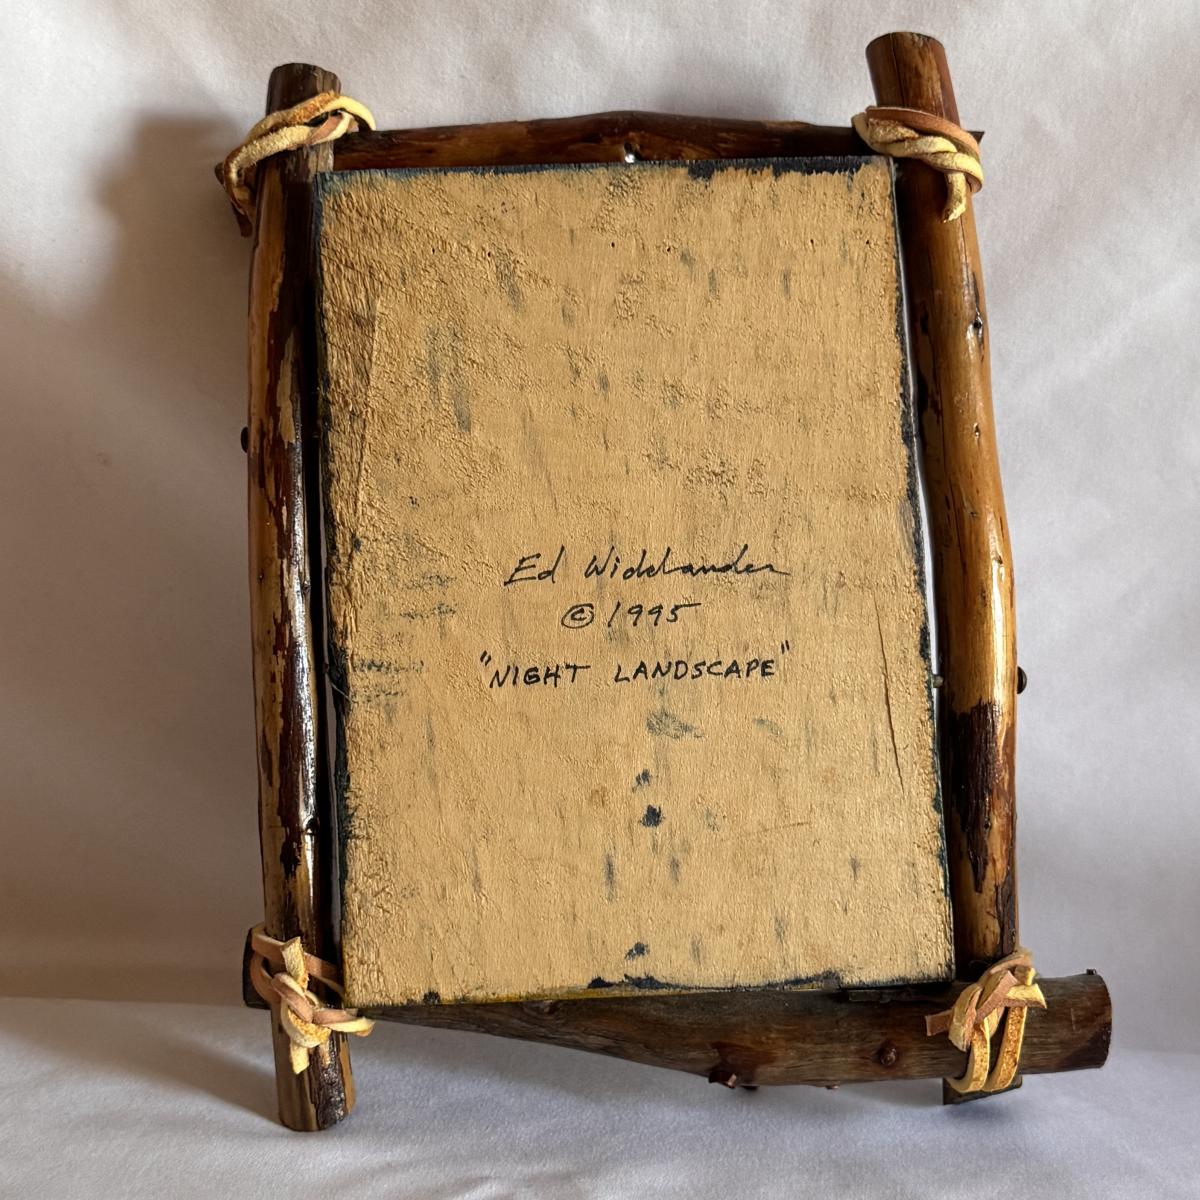 Ed Widelander
© 1995
"NIGHT LANDSCAPE"